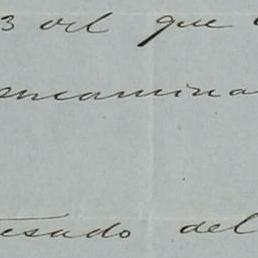 3 del que
encamina
tesado del